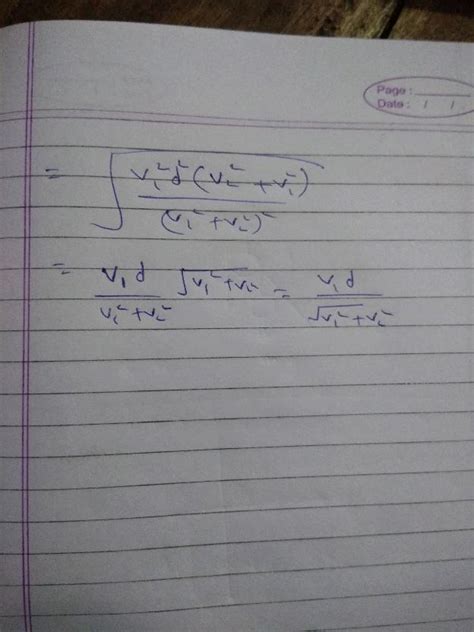 Page :
Date : / /
= √(v₁²d²(v₂² + v₁²) / (v₁² + v₂²)²)
= v₁d / (v₁² + v₂²) √(v₁² + v₂²) = v₁d / √(v₁² + v₂²)